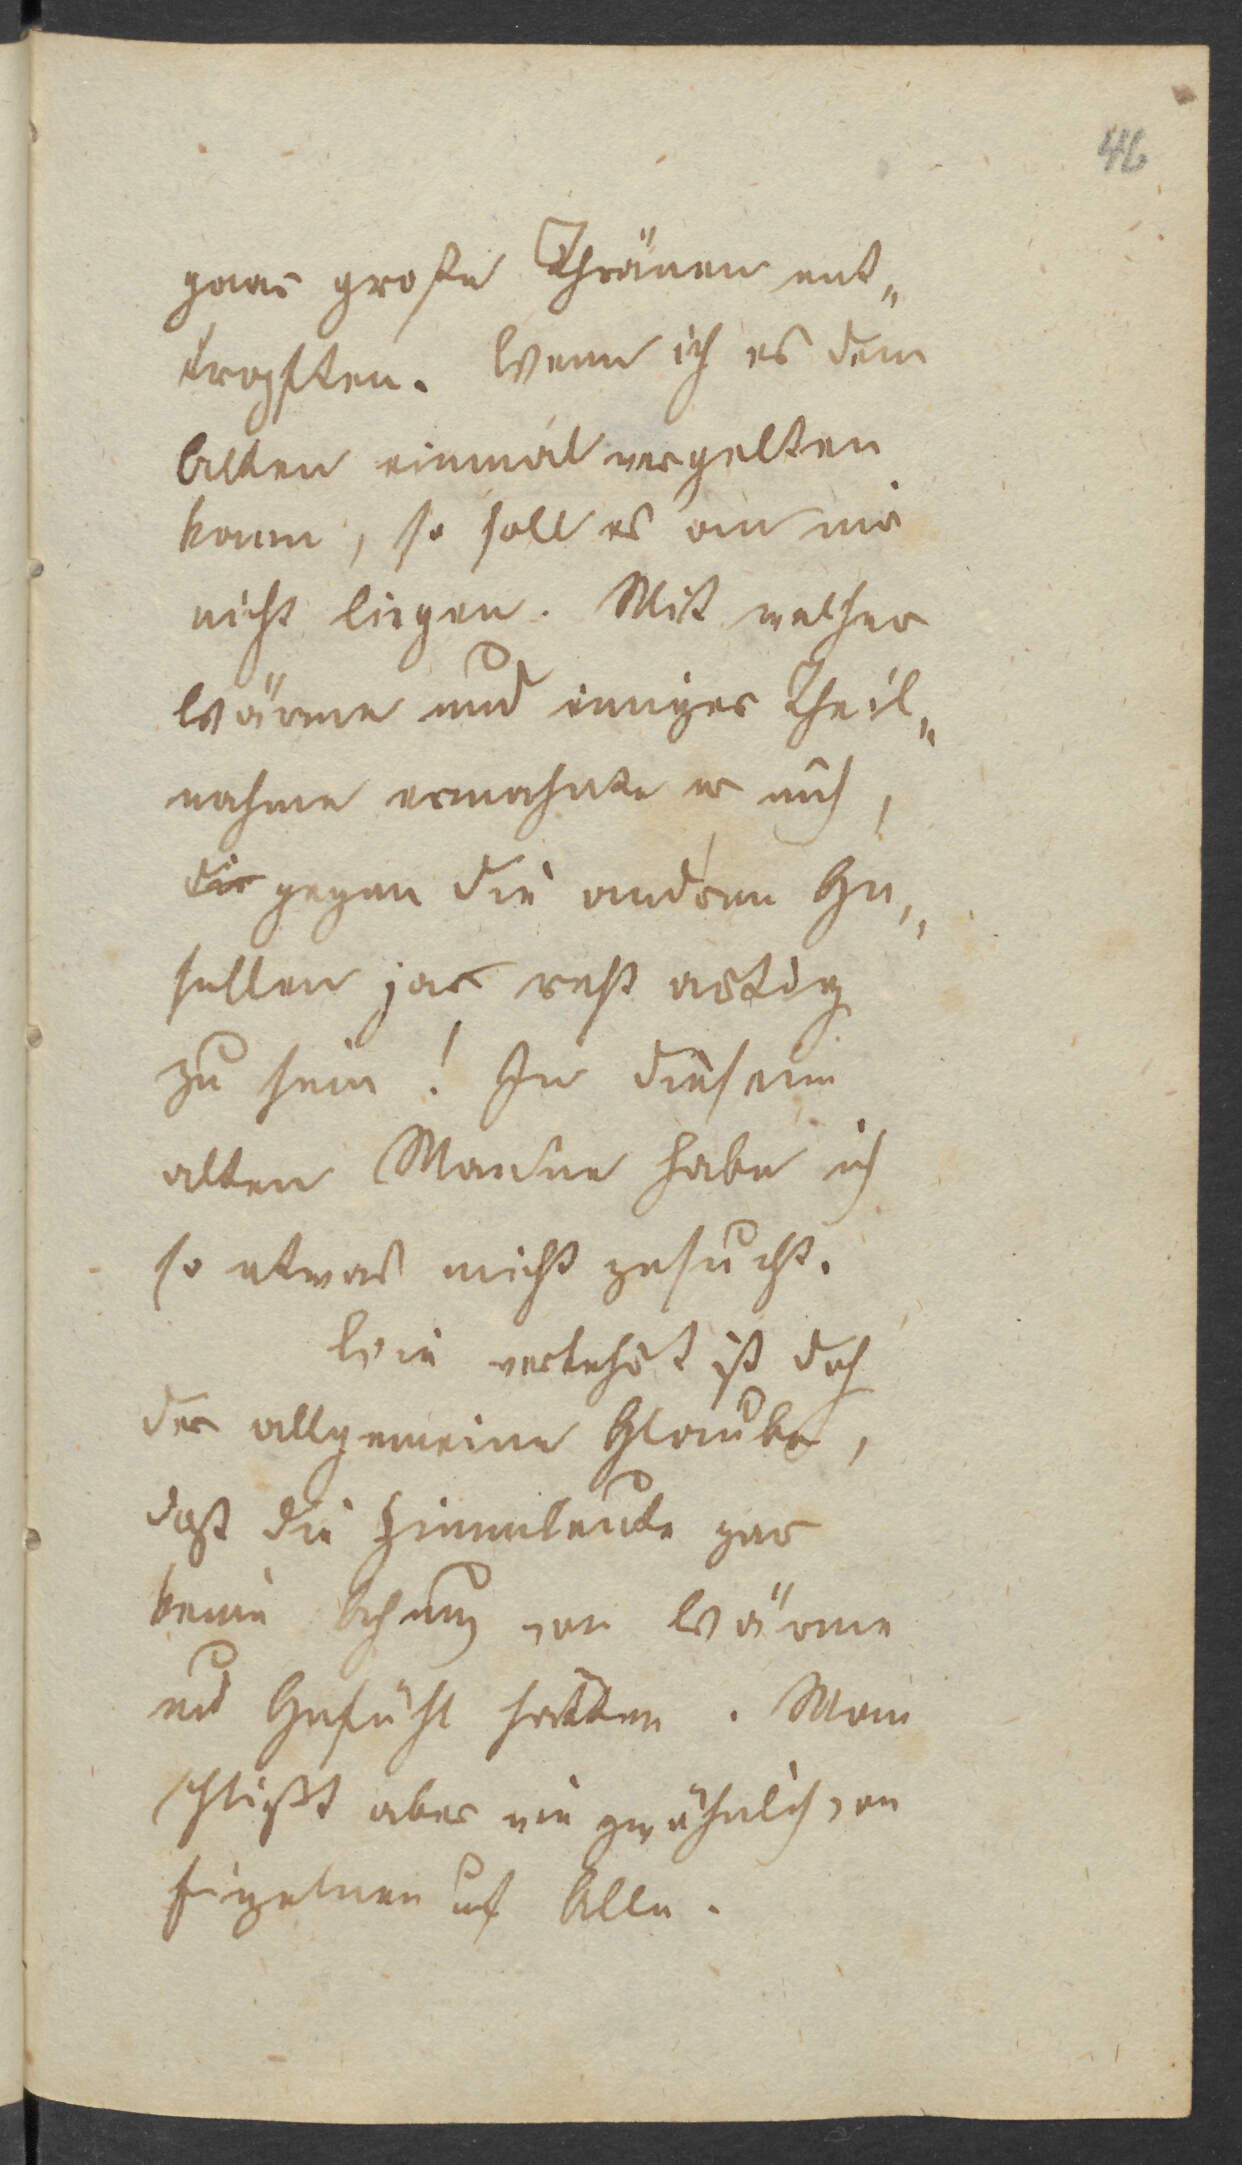 46
paar große Thränen ent„
tropften. Wenn ich es dem
Alten einmal vergelten
kann, so soll es an mir
nicht liegen. Mit welcher
Wärme und inniger Theil„
nahme ermahnte er mich,
die gegen die andren Ge„
sellen ja recht artig
zu sein! In diesem
alten Manne habe ich
so etwas nicht gesucht.
Wie verkehrt ist doch
der allgemeine Glaube,
daß die
keine Ahnung von Wärme
und Gefühl hätten. Man
schließt aber wie gewöhnlich von
Einzelnen auf Alle.